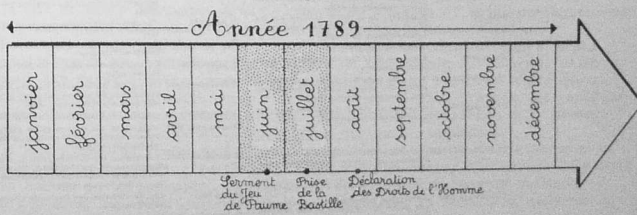 Année 1789
janvier
février
mars
avril
mai
juin
juillet
août
septembre
octobre
novembre
décembre
Serment
du Jeu
de Paume
Prise
de la
Bastille
Déclaration
des Droits de l'Homme